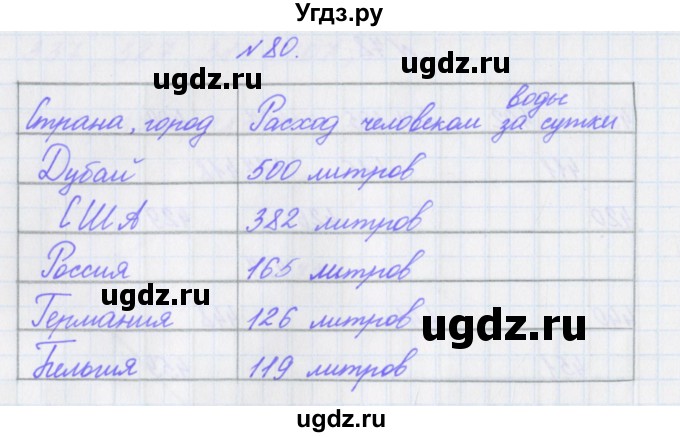 Угдз.ру
№ 80.
ugdz.ru ugdz.ru
Страна, город Расход человеком воды за сутки
Дубай 500 литров
ugdz.ru ugdz.ru
США 382 литров
Россия 165 литров
ugdz.ru
Германия 126 литров
ugdz.ru
Бельгия 119 литров
ugdz.ru